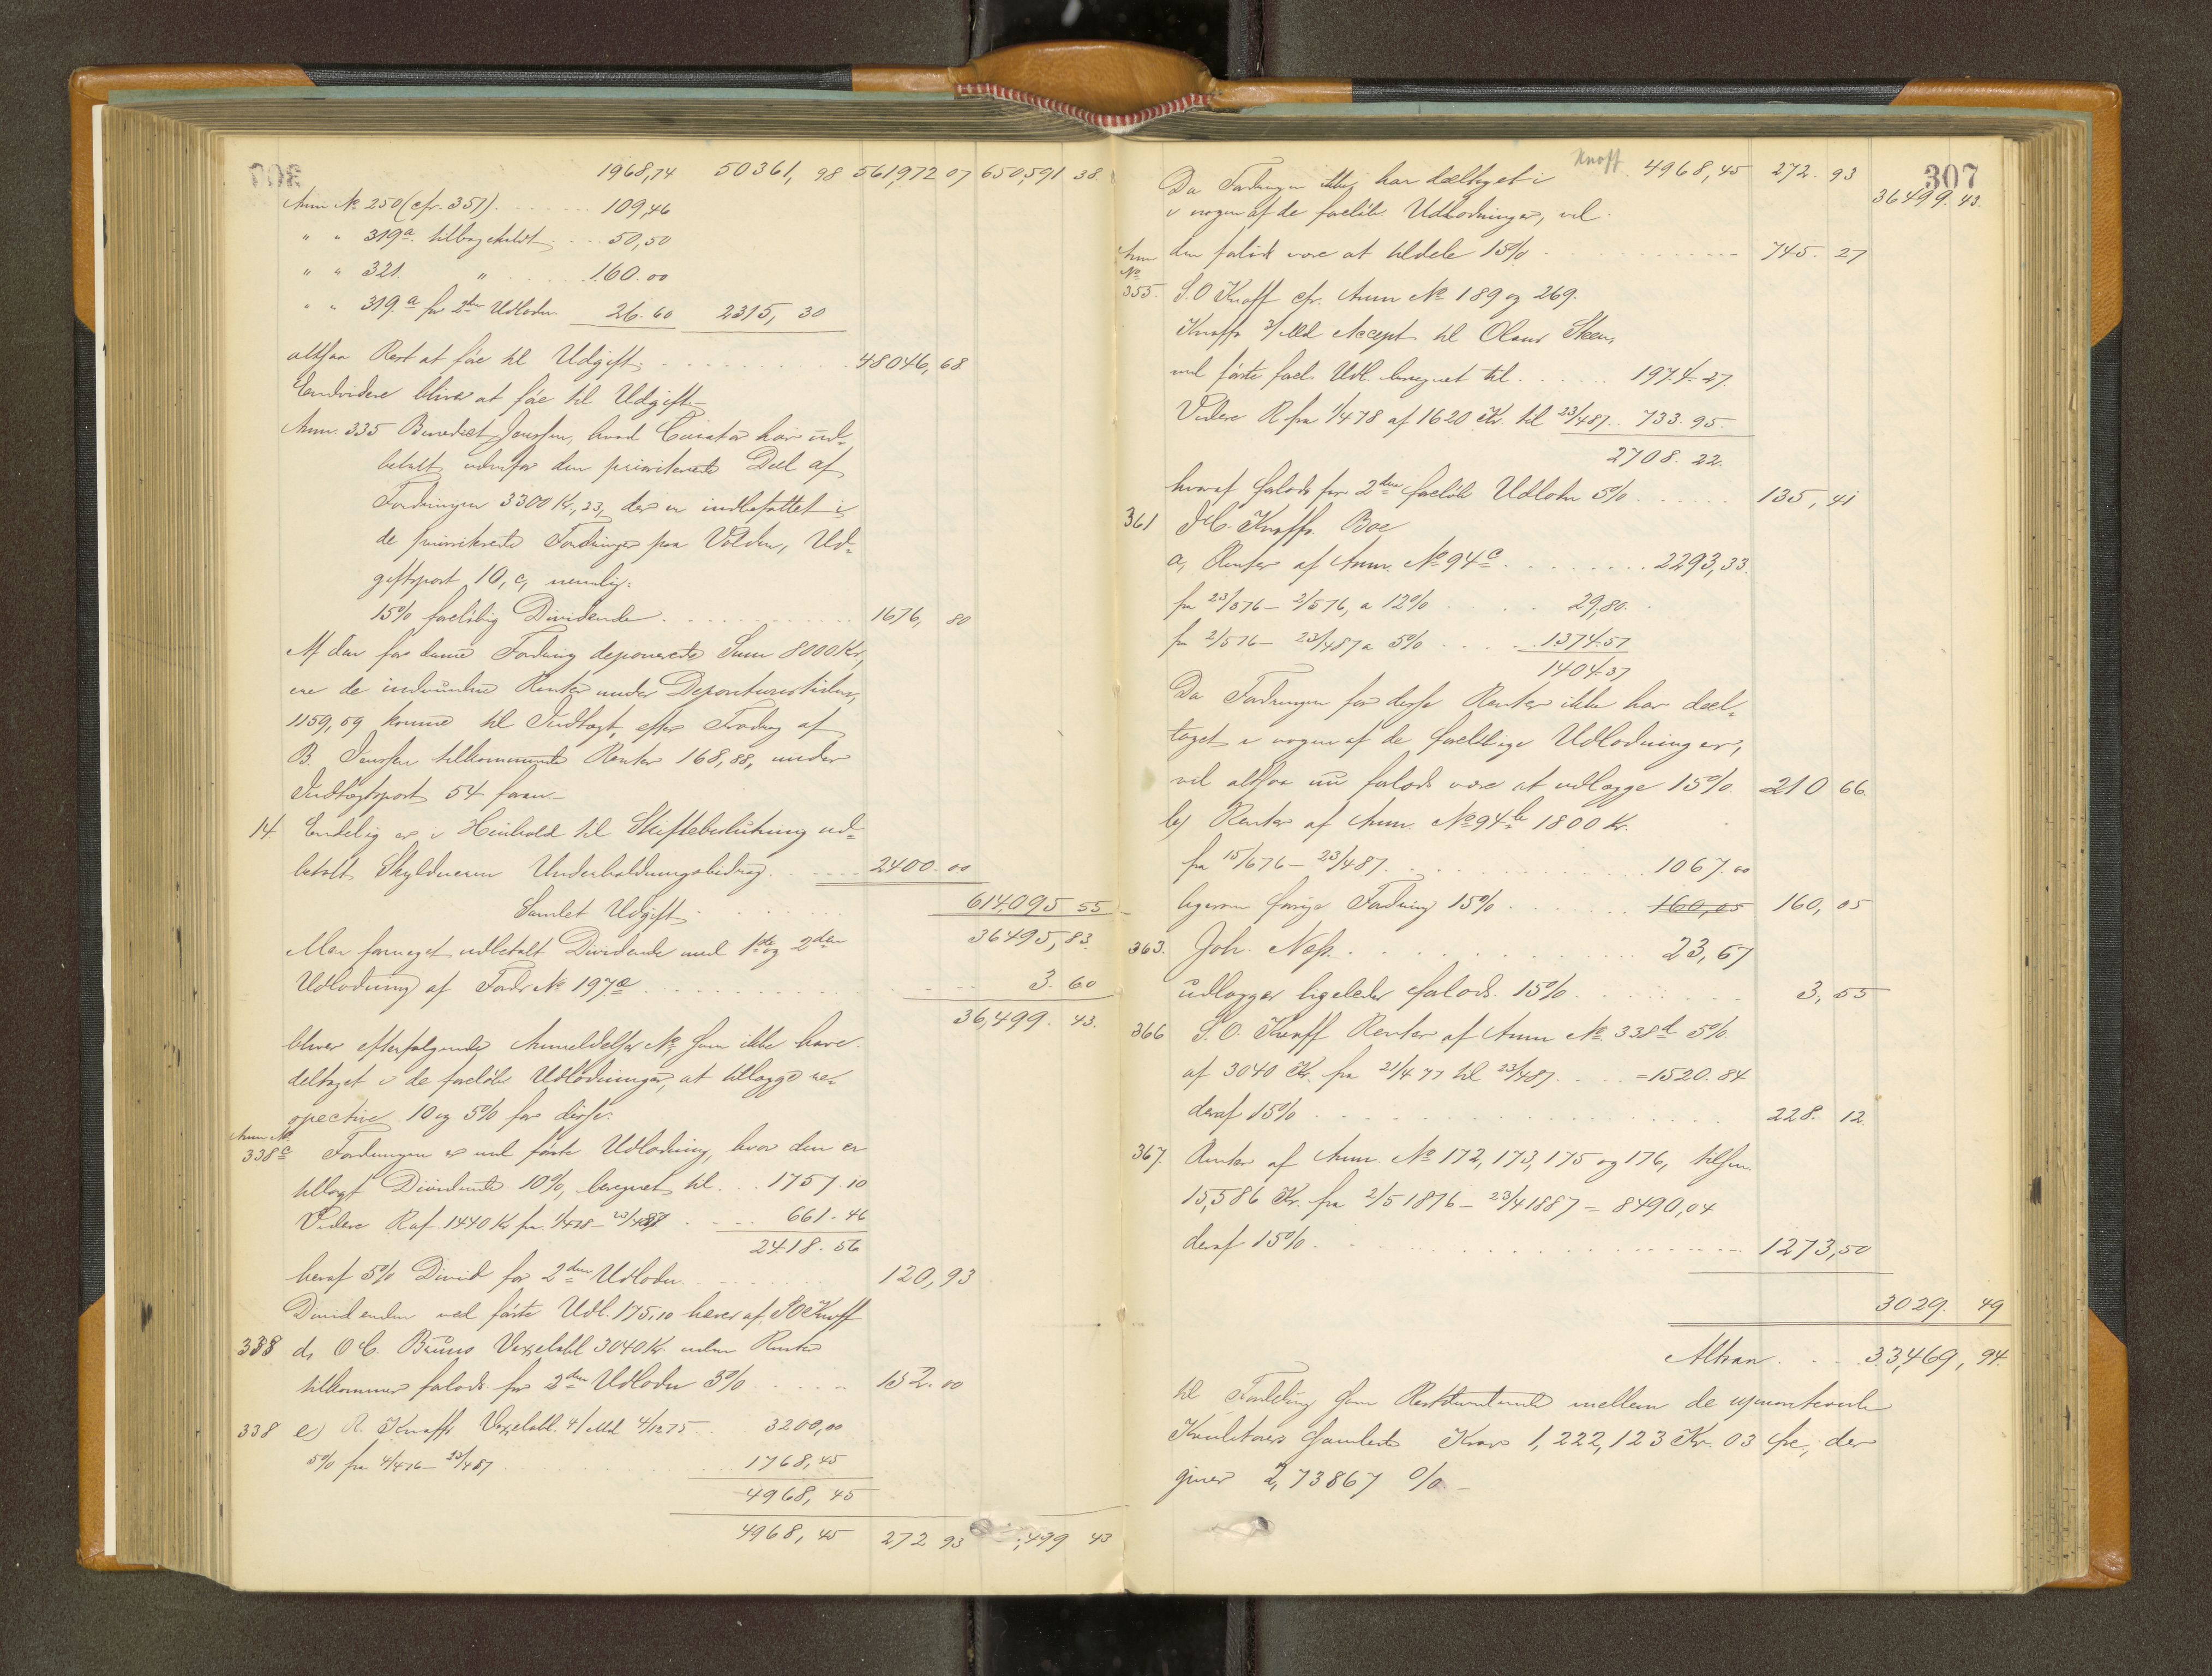 1968,74 50361, 98 561,972 07 650,591 38.
Anm № 250 (cfr. 351) 109,46
" " 319a. tilbageholdt 50,50
" " 321 " 160.00
" " 319.a for 2den Udlodn. 26.60 2315, 30
altsaa Rest at føre til Udgift 48046, 68
Endvidere bliver at føre til Udgift
Anm. 335 Benedict Jenssen, hvad Curator har ud-
betalt udenfor den prioriterede Deel af
Fordringen 3300 Kr, 23, der er indbefattet i
de prioriterede Fordringer paa Volden, Ud-
giftspost 10, c, nemlig:
15% foreløbig Dividende 1676, 80
Af den for denne Fordring deponerede Sum 8000 Kr,
ere de indvundne Renter under Depositionstiden,
1159,59 komme til Indtægt, efter Fradrag af
B. Jenssen tilkommende Renter 168,88, under
Indtægtspost 54 foran.
14. Endelig er i Henhold til Skiftebeslutning ud-
betalt Skyldneren Underholdningsbidrag 2400.00
Samlet Udgift 614,095 55
36495,83.
Men formeget udbetalt Dividende ved 1ste og 2den
Udlodning af Fordr № 197a 3.60
36,499. 43.
bliver efterfølgende Anmeldelser №, som ikke have
deltaget i de foreløb. Udlodninger, at tillægge re-
spective 10 og 5% for disse:
Anm №
338c Fordringen er ved første Udlodning, hvor den er
tillagt Dividende 10%, beregnet til 1757.10
Videre R af 1440 Kr fra 1/478 - 23/487 661.46
2418.56
heraf 5% Divid for 2den Udlodn. 120,93
Dividenden ved første Udl. 175.10 hæves af S O Knoff
338 d, O C. Bruuns Vexelobl 3040 Kr. uden Renter
tilkommer forlods for 2den Udlodn 5% 152.00
338 e) R. Knoffs Vexelobl. 4/Md 4/1275 3200,00
5% fra 4/476 - 23/487 1768,45
4968, 45
4968, 45 272 93 ,499 43
307
Knoff 4968,45 272. 93
36499. 43.
Da Fordringen ikke har deeltaget i
i nogen af de foreløb. Udlodninger, vil
den forlods være at tildele 15% 745. 27
Anm
№
355. S. O Knoff cfr. Anm № 189 og 269.
Knoffs 3/Md Accept til Olaus Steen,
ved første forel. Udl. beregnet til 1974.27.
Videre R fra 1/478 af 1620 Kr. til 23/487 733.95.
2708.22.
hvoraf forlods for 2den foreløb Udlodn 5% 135, 41
361 Knoffs Boe
a, Renter af Anm. № 94c 2293,33.
fra 23/376 - 2/576, a 12% 29,80.
fra 2/576 - 23/487 a 5% 1374.57
1404.37
Da Fordringen for disse Renter ikke har deel-
taget i nogen af de foreløbige Udlodninger,
vil altsaa nu forlods være at udlægge 15% 210 66.
b) Renter af Anm. № 94b 1800 Kr.
fra 15/676 - 23/487. 1067.00
ligesom forrige Fordring 15% 160,05 160, 05
363. Joh. Ness. 23,67
udlægges ligeledes forlods 15% 3, 55
366 S. O. Knoff Renter af Anm № 338d 5%
af 3040 Kr. fra 21/4 77 til 23/487. =1520.84
deraf 15% 228. 12.
367. Renter af Anm. № 172, 173, 175 og 176, tilsm.
15,586 Kr. fra 2/5 1876 - 23/4 1887 = 8490,04
deraf 15% 1273,50
3029. 49
Altsaa 33,469, 94.
til Fordeling som Restdividende mellem de uprioriterede
Kreditorers samlede Krav 1,222,123 Kr. 03 Øre, der
giver 2,73867 %